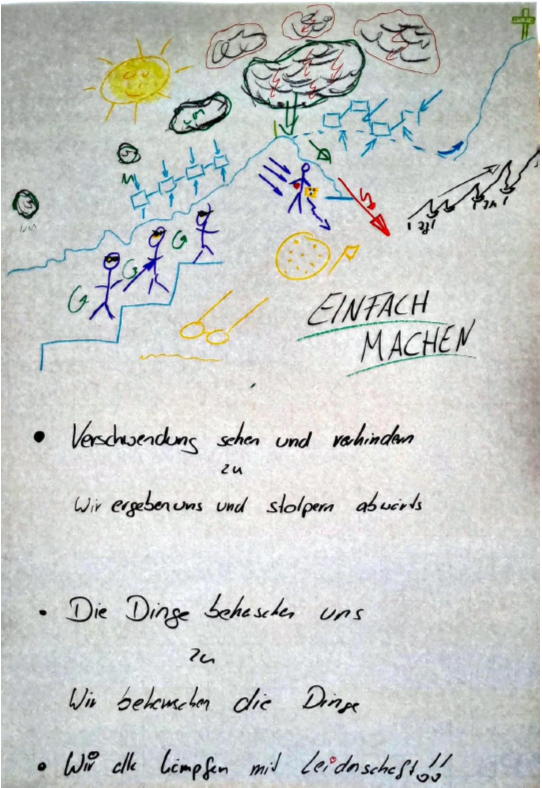 EINFACH
MACHEN
• Verschwendung sehen und verhindern
zu
Wir ergeben uns und stolpern abwärts
• Die Dinge beheschen uns
zu
Wir beherrschen die Dinge
• Wir alle kämpfen mit Leidenschaft!!